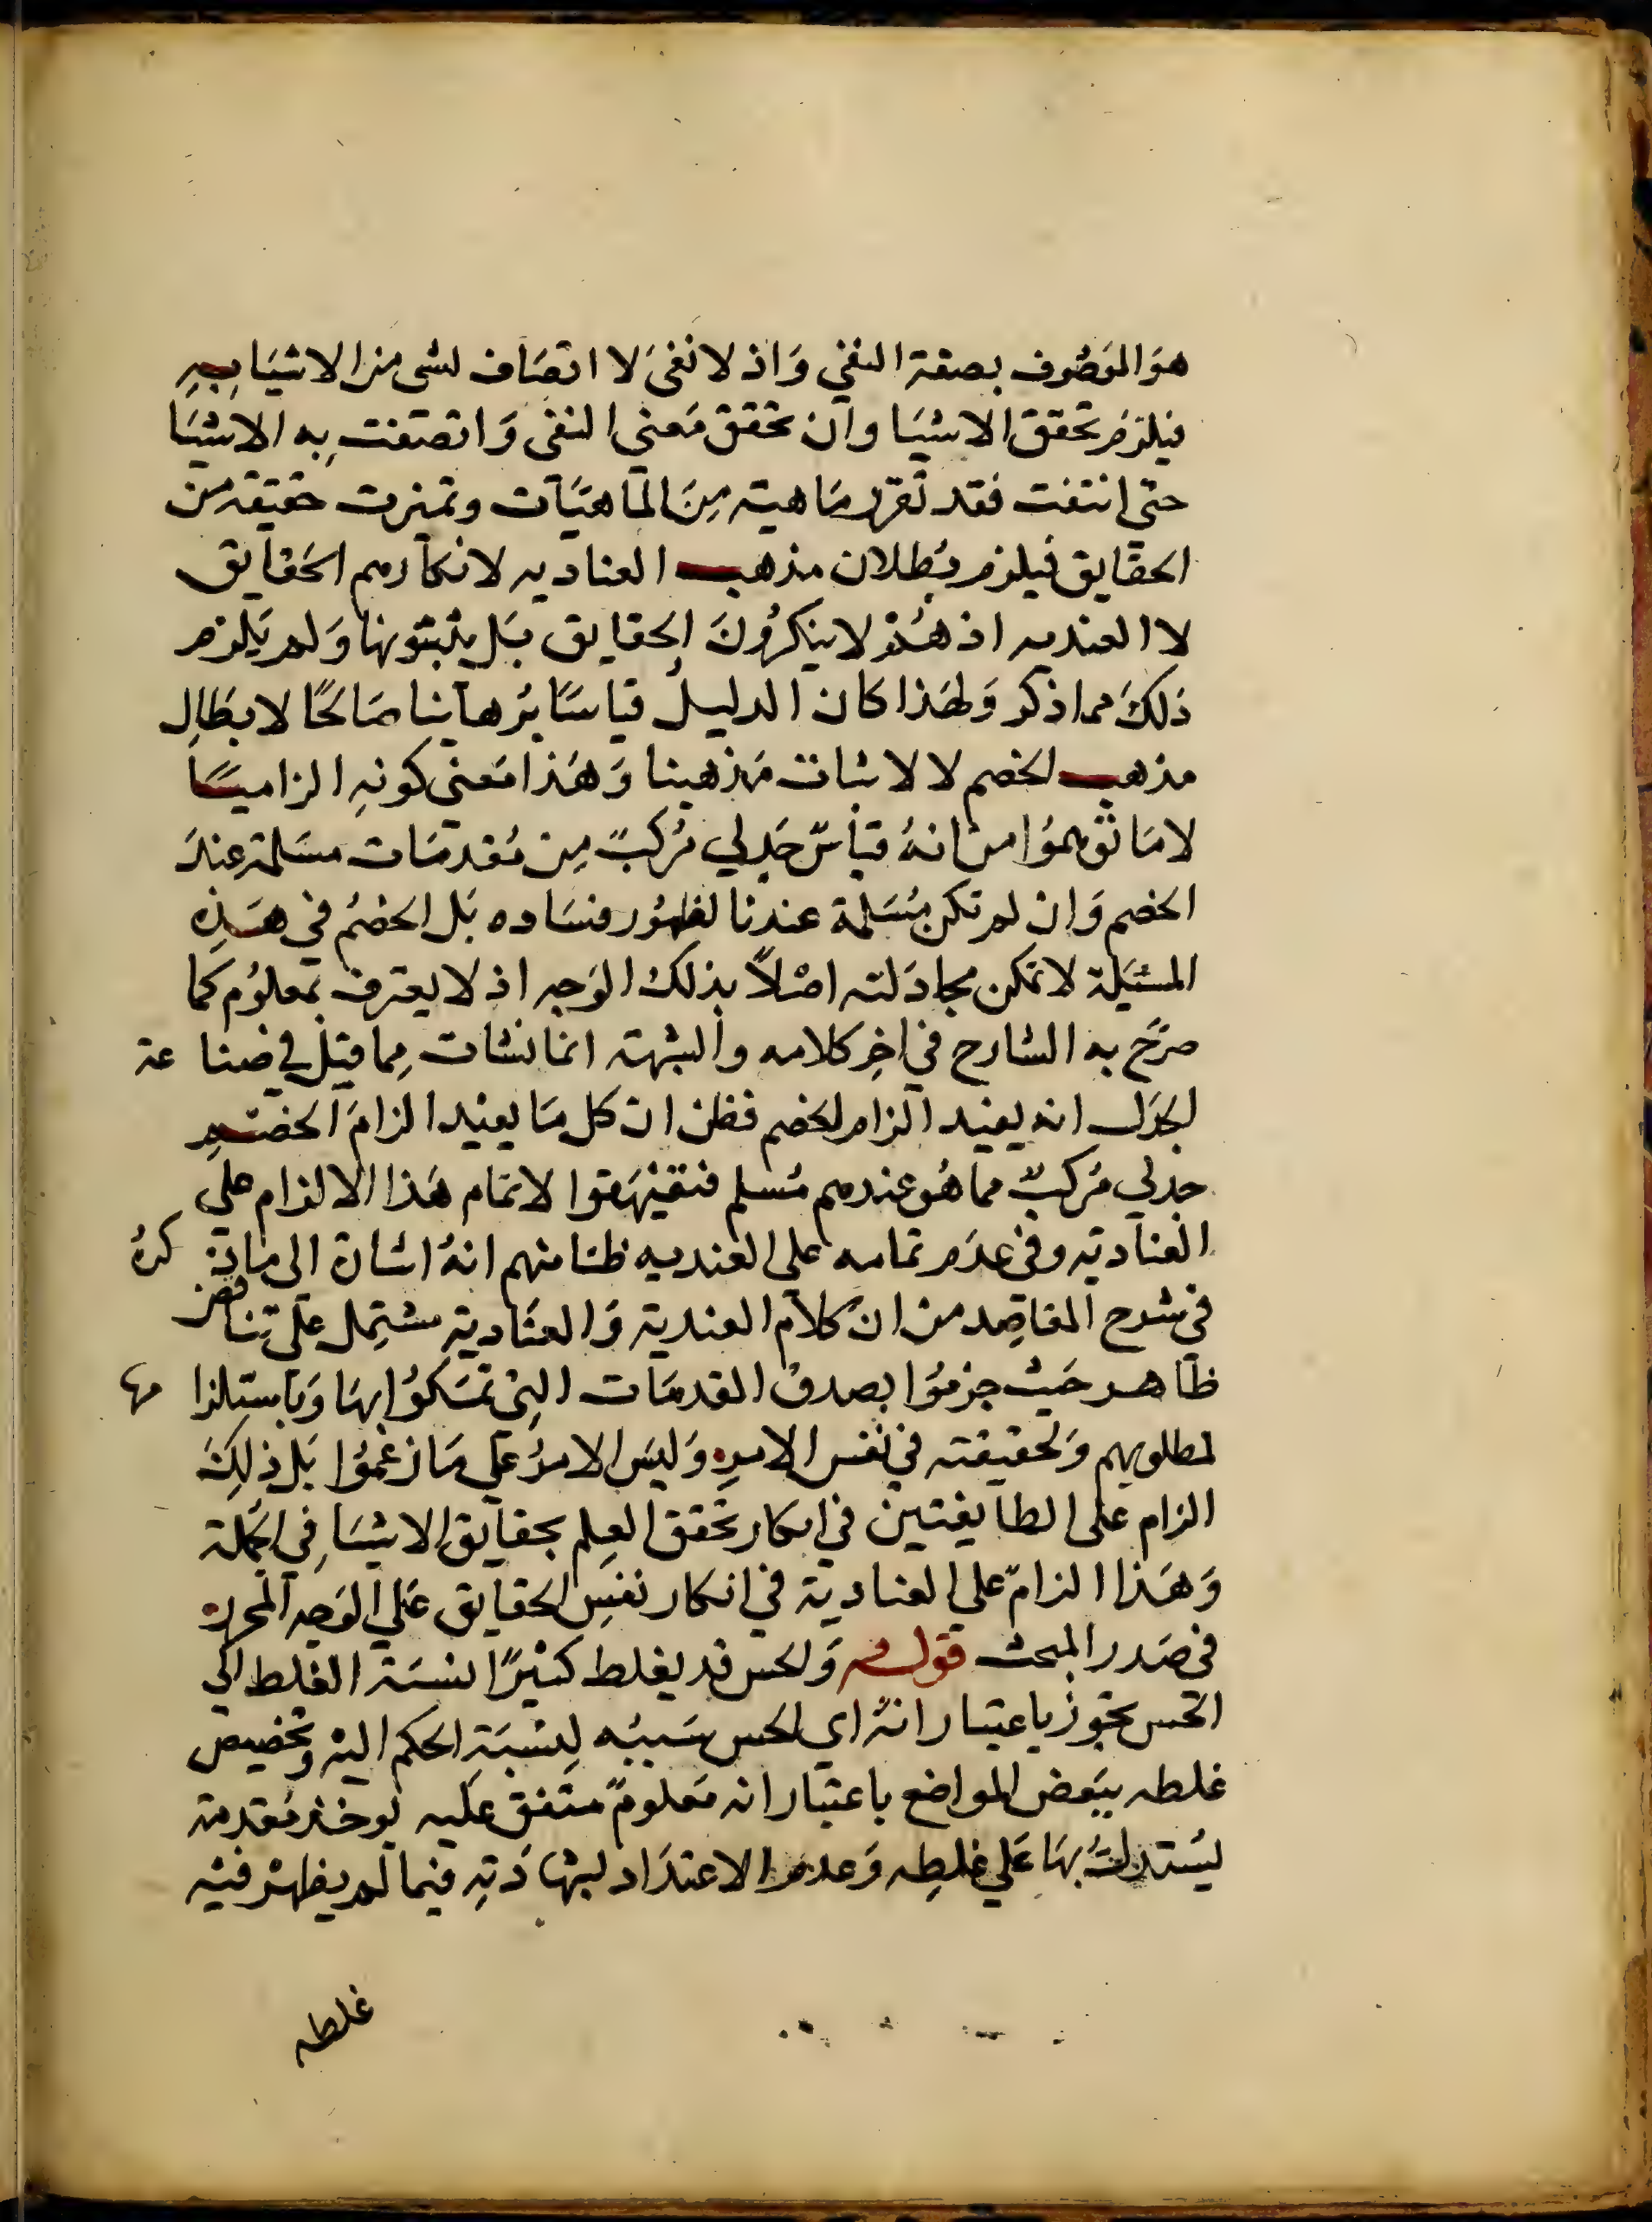 هوَ الموَصُوف بصفة النفي وَاذ لا نفىَ لا اتصَاف لشى من الاشيَا بهِ
فيلزمر تحقق الاشيَا وان تحقق مَعنى النفى وَاتصفت بِه الاشيَا
حتى انتفت فقد تقرر مَاهية مِنَ الماهيَات وتميزت حقيقة من
الحقايق فيلزمر بُطلان مذهب العناديه لانكارهم الحَقايق
لا العنديه اذ هُمْ لا ينكرُونَ الحقايق بَل يثبتونها وَلم يَلزم
ذلكَ مما ذكر وَلهَذا كان الدليلُ قياسًا بُرهانيا صَالحًا لابطَال
مذهب الخصم لا لاثبات مَذهبنا وَهَذا مَعنى كونهِ الزاميًا
لا مَا توهموُا من انهُ قياسٌ جَدلي مُركبٌ مِن مُقدمَات مسَلمة عندَ
الخصم وَان لم تكن مُسَلمة عندنا لظهُور فسَاده بَل الخصمُ في هَذِه
المسئيلة لا تمكن مجادَلته اصْلاً بذلكَ الوَجه اذ لا يعترف بمَعلوُم كما
صرَّح به الشارح في اخِر كلامه والشبهة انما نشات مِما قيل في صنا عة
الجدَل انه يفيد الزام الخصم فظن ان كل مَا يفيد الزامَ الخصَم
جدلي مُركبٌ مما هُو عندهم مُسلم فتفيْهقوا لاتمَام هَذا الالزام على
العنادية وفى عدَم تمامه على العنديه ظنا منهم انهُ اشارة الى ما ذ كرهُ
في شرح المقاصِد من ان كلام العندية وَالعنَادية مشتمِل على تنا قض
ظاهر حَيث جزموُا بصدق المقدمَات التى تمسَكوُا بهَا وَباستلزا مها
لمطلوبهم وَلحقيقته في نفس الامرِ وَليسَ الامرُ على مَا زعَموُا بَل ذلِكَ
الزام على الطايفتين في انكار تحقق العِلم بحقايق الاشيَا في الجملة
وَهَذا الزامٌ على العنادية في انكار نفسِ الحقايق عَلي الوَجه المحررِ
في صَدر المبحث قوله وَالحس قد يغلط كثيرًا نسبَة الغلط الى
الحس تجوّز باعتبار انهُ اي الحس سَببُه لِنسْبَةِ الحكم اليهْ وتخصيص
غلطه ببَعض المواضع باعتبار انه مَعلومٌ متفق عليه يوخذ مُقدمة
ليُستدلُ بهَا عَلي غلطِه وَعدم الاعتدَاد بشهادَتِه فيما لم يظهرْ فيه
غلطه